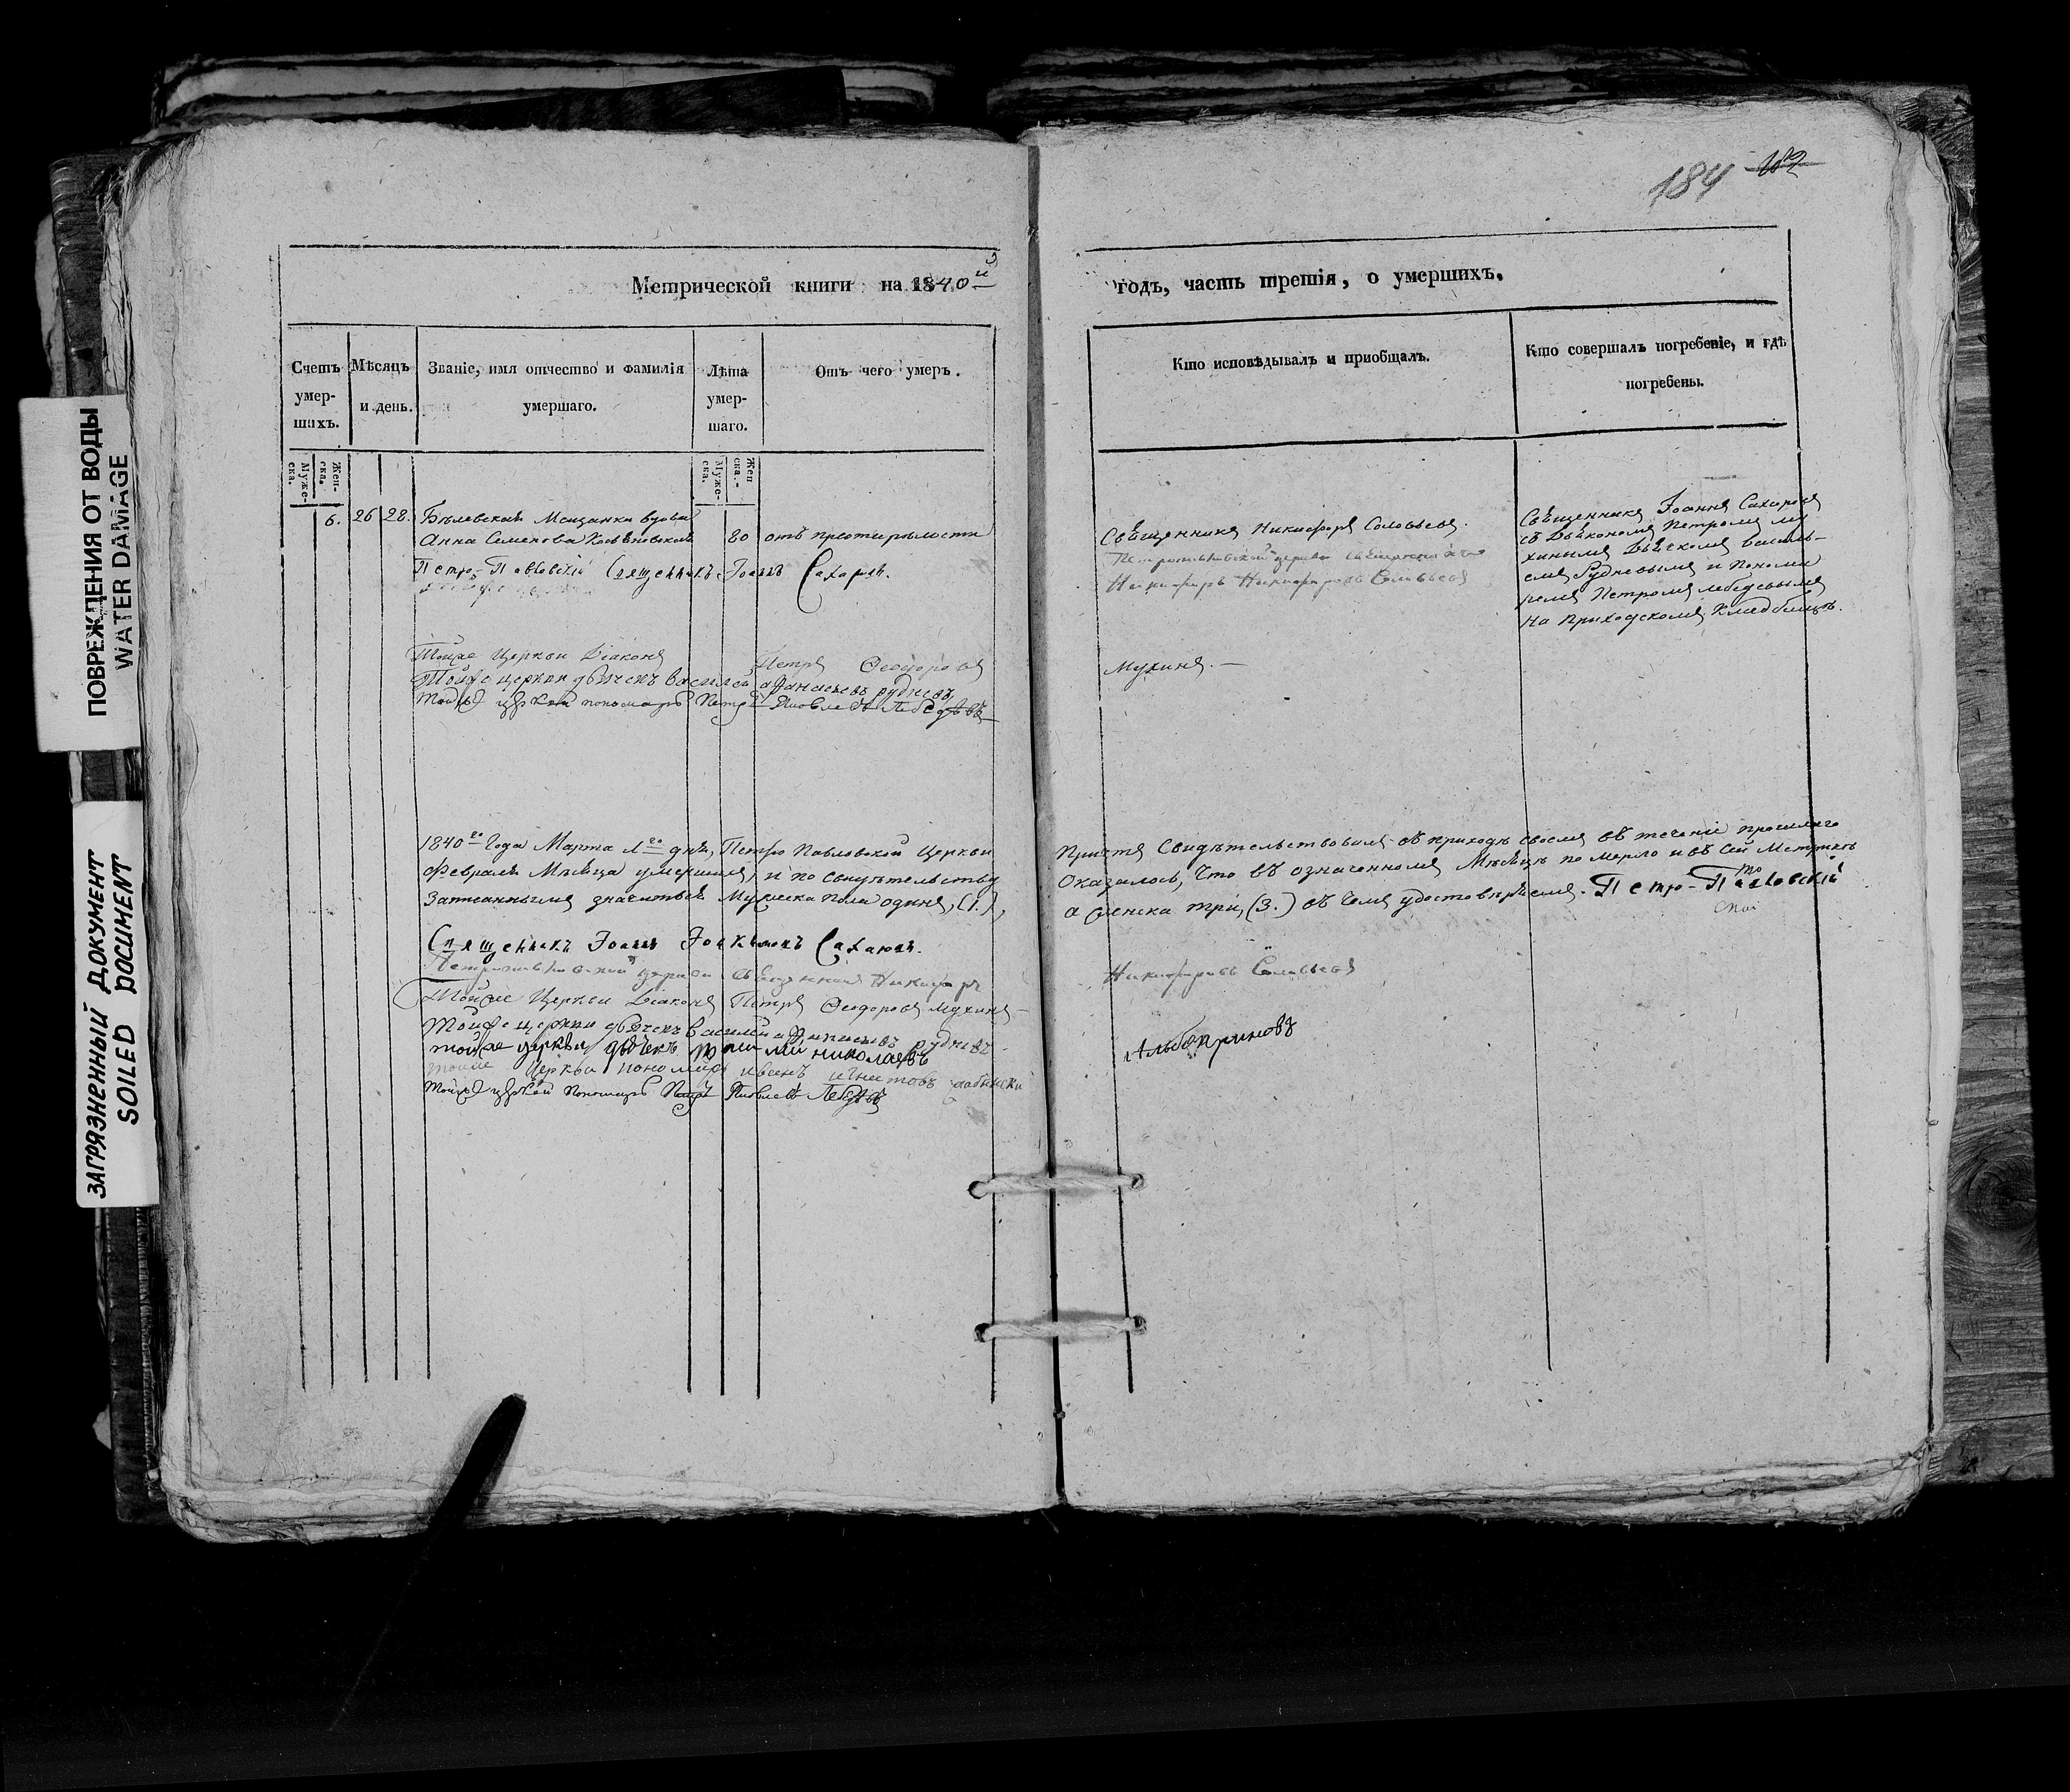 184 182
Метрической книги на 1840й
годъ, часть третія, о умершихъ.
Счетъ умер-шихъ.
Мѣсяцъ и день.
Званіе, имя отчество и фамилія умершаго.
Лѣта умер-шаго.
Отъ чего умеръ.
Кто исповѣдывалъ и пріобщалъ.
Кто совершалъ погребеніе, и гдѣ погребены.
Муже-ска.
Жен-ска.
Муже-ска.
Жен-ска.
6. 26 28. Бѣлевская Мещанка вдова
Анна Семенова
80
отъ престарѣлости
Священникъ Никифоръ Соловьевъ.
Священникъ Іоаннъ Сахаровъ
съ Діакономъ Петромъ Му
хинымъ Дьячкомъ Василь-
емъ Рудневымъ и Понома
ремъ Петромъ Лебедевымъ
на приходскомъ Кладбищѣ.
Петро-Павловскій Священникъ Іоаннъ Сахаровъ.
Петропавловской церкви священникъ
Никифоръ Никифоровъ Соловьевъ
Тойже Церкви Діаконъ Петръ Ѳеодоровъ
Мухинъ.
Тойже церкви дьячекъ Василей Афанасьевъ рудневъ
Тойже церкви пономарь Петръ Яковлевъ Лебедевъ
1840го Года Марта 1го дня, Петро Павловской Церкви
Причтъ Свидѣтельствовалъ въ приходѣ своемъ въ теченіи прошлаго
Февраля Мѣсяца умершихъ, и по свидѣтельству
Оказалось, что въ означенномъ Мѣсяцѣ померло и въ сей Метрикѣ
Записанными значиться Мужеска пола одинъ, (1.),
а женска три, (3.) въ чемъ удостовѣряемъ. Петро-Павловскій
Священникъ Іоаннъ Іоакимовъ Сахаровъ.
Петропавловской церкви священникъ Никифоръ
Никифоровъ Соловьевъ
Тойже Церкви Діаконъ Петръ Ѳеодоровъ Мухинъ
Тойже церкви дьячекъ Василий Афанасьевъ рудневъ
тойже церкви дьячекъ николаевъ
Тойже Церкви пономарь
Тойже церкви Пономарь Петръ Яковлевъ Лебедевъ
ПОВРЕЖДЕНИЯ ОТ ВОДЫ
WATER DAMAGE
ЗАГРЯЗНЕННЫЙ ДОКУМЕНТ
SOILED DOCUMENT